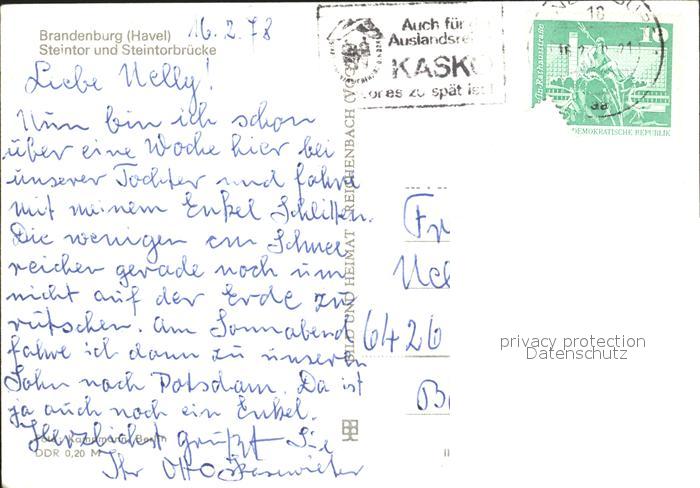 Brandenburg (Havel)
Steintor und Steintorbrücke
16.2.78
Liebe Nelly!
Nun bin ich schon
über eine Woche hier bei
unserer Tochter und fahre
mit meinem Enkel Schlitten.
Die wenigen cm Schnee
reichen gerade noch um
nicht auf der Erde zu
rutschen. Am Sonnabend
fahre ich dann zu unserem
Sohn nach Potsdam. Da ist
ja auch noch ein Enkel.
Herzlichst grüßt Sie
Ihr Otto
DDR 0,20 M
BILD UND HEIMAT REICHENBACH (V
Auch für
Auslandsre
KASK
es zu spät ist!
18
10
DEMOKRATISCHE REPUBLIK
Fr
Nel
6426
B
privacy protection
Datenschutz